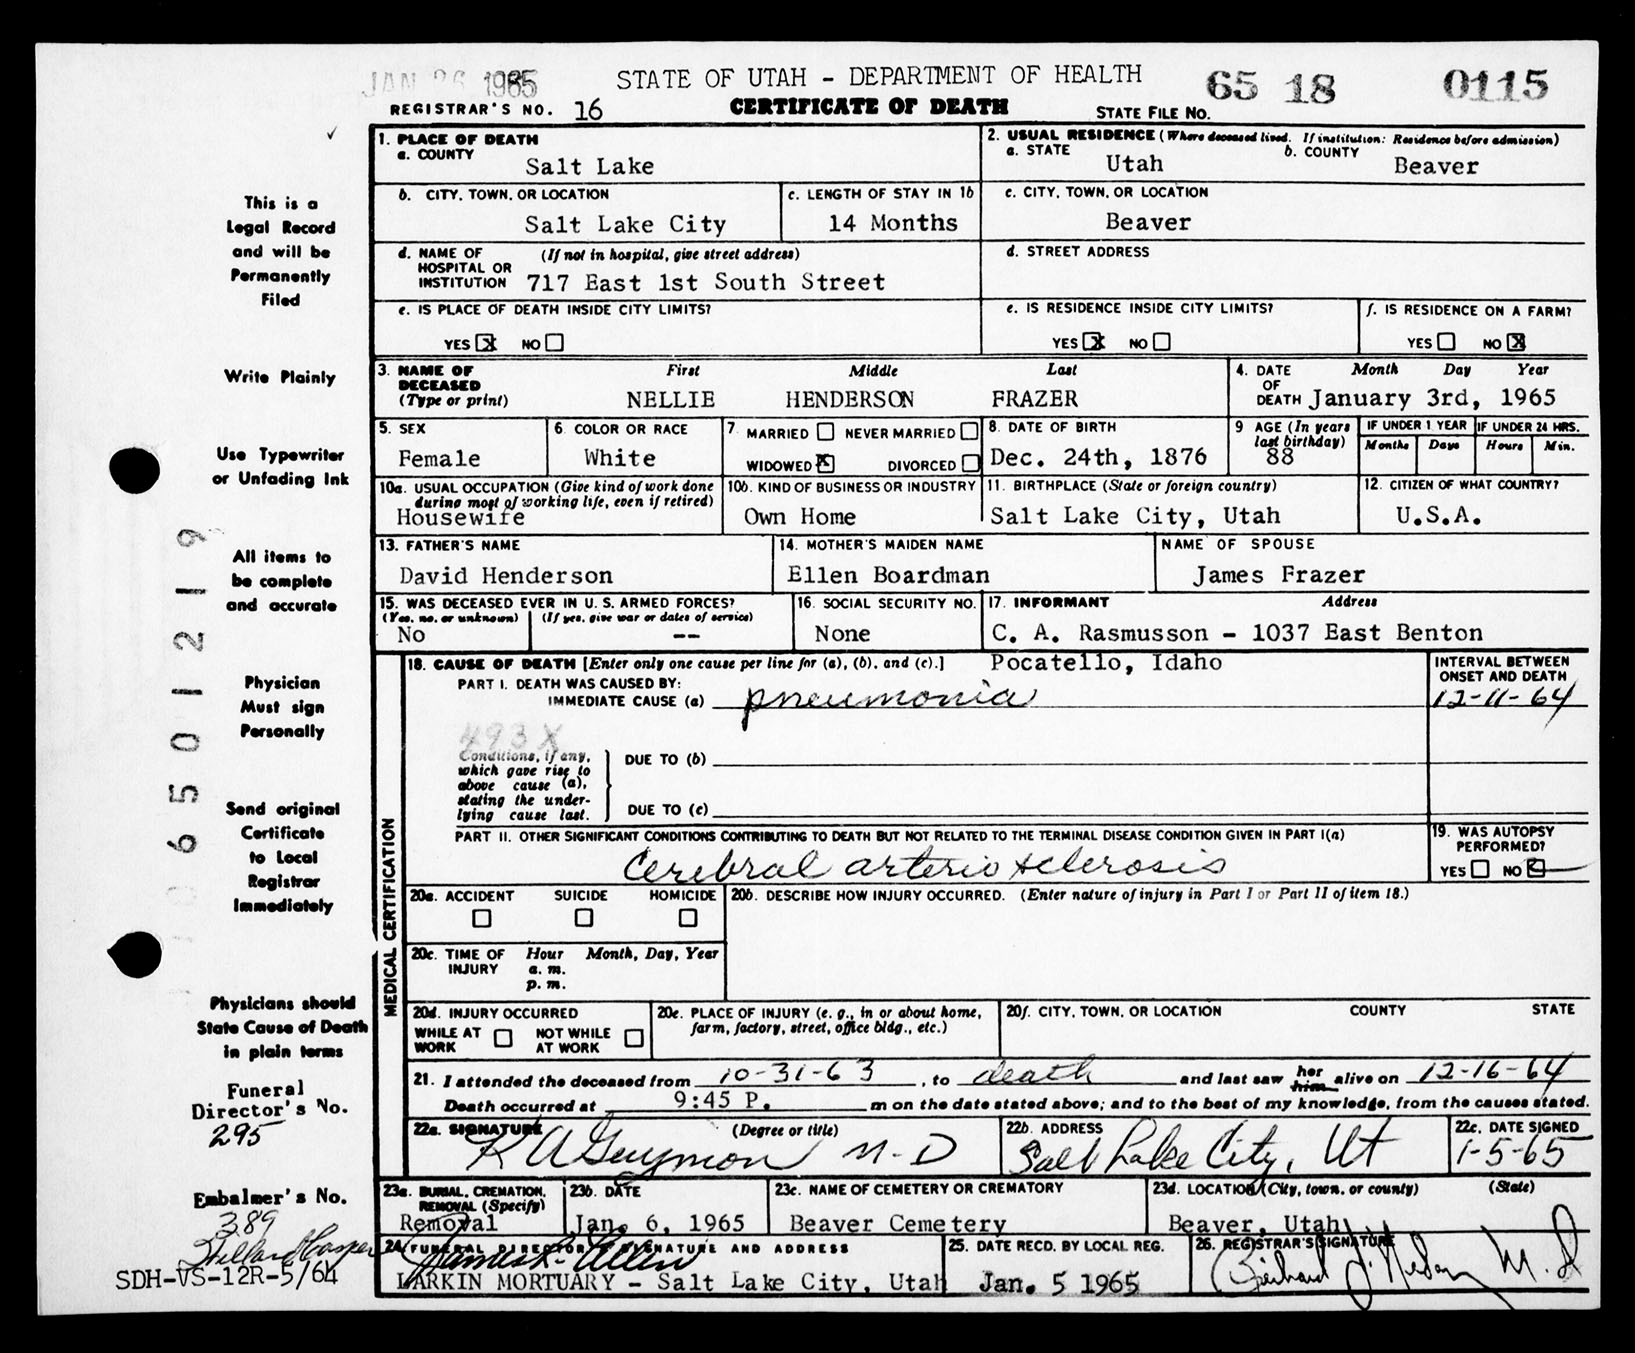 JAN 26 1965
STATE OF UTAH - DEPARTMENT OF HEALTH
65 18 0115
REGISTRAR'S NO. 16
CERTIFICATE OF DEATH
STATE FILE NO.
1. PLACE OF DEATH
a. COUNTY
Salt Lake
2. USUAL RESIDENCE (Where deceased lived. If institution: Residence before admission)
a. STATE
Utah
b. COUNTY
Beaver
b. CITY, TOWN, OR LOCATION
Salt Lake City
c. LENGTH OF STAY IN 1b
14 Months
c. CITY, TOWN, OR LOCATION
Beaver
d. NAME OF HOSPITAL OR INSTITUTION
(If not in hospital, give street address)
717 East 1st South Street
d. STREET ADDRESS
e. IS PLACE OF DEATH INSIDE CITY LIMITS?
YES X NO
e. IS RESIDENCE INSIDE CITY LIMITS?
YES X NO
f. IS RESIDENCE ON A FARM?
YES NO X
3. NAME OF DECEASED (Type or print)
First Middle Last
NELLIE HENDERSON FRAZER
4. DATE OF DEATH
Month Day Year
January 3rd, 1965
5. SEX
Female
6. COLOR OR RACE
White
7. MARRIED NEVER MARRIED
WIDOWED X DIVORCED
8. DATE OF BIRTH
Dec. 24th, 1876
9 AGE (In years last birthday)
88
IF UNDER 1 YEAR
Months Days
IF UNDER 24 HRS.
Hours Min.
10a. USUAL OCCUPATION (Give kind of work done during most of working life, even if retired)
Housewife
10b. KIND OF BUSINESS OR INDUSTRY
Own Home
11. BIRTHPLACE (State or foreign country)
Salt Lake City, Utah
12. CITIZEN OF WHAT COUNTRY?
U.S.A.
13. FATHER'S NAME
David Henderson
14. MOTHER'S MAIDEN NAME
Ellen Boardman
NAME OF SPOUSE
James Frazer
15. WAS DECEASED EVER IN U.S. ARMED FORCES?
(Yes, no, or unknown) (If yes, give war or dates of service)
No --
16. SOCIAL SECURITY NO.
None
17. INFORMANT Address
C. A. Rasmusson - 1037 East Benton
Pocatello, Idaho
MEDICAL CERTIFICATION
18. CAUSE OF DEATH [Enter only one cause per line for (a), (b), and (c).]
PART I. DEATH WAS CAUSED BY:
IMMEDIATE CAUSE (a) pneumonia
INTERVAL BETWEEN ONSET AND DEATH
12-11-64
493X
Conditions, if any, which gave rise to above cause (a), stating the underlying cause last.
DUE TO (b)
DUE TO (c)
PART II. OTHER SIGNIFICANT CONDITIONS CONTRIBUTING TO DEATH BUT NOT RELATED TO THE TERMINAL DISEASE CONDITION GIVEN IN PART I(a)
Cerebral arterio sclerosis
19. WAS AUTOPSY PERFORMED?
YES NO
20a. ACCIDENT SUICIDE HOMICIDE
20b. DESCRIBE HOW INJURY OCCURRED. (Enter nature of injury in Part I or Part II of item 18.)
20c. TIME OF INJURY
Hour Month, Day, Year
a. m.
p. m.
20d. INJURY OCCURRED
WHILE AT WORK NOT WHILE AT WORK
20e. PLACE OF INJURY (e. g., in or about home, farm, factory, street, office bldg., etc.)
20f. CITY, TOWN, OR LOCATION COUNTY STATE
21. I attended the deceased from 10-31-63, to death and last saw her him alive on 12-16-64
Death occurred at 9:45 P. m on the date stated above; and to the best of my knowledge, from the causes stated.
22a. SIGNATURE (Degree or title)
K A Guymon M-D
22b. ADDRESS
Salt Lake City, Ut
22c. DATE SIGNED
1-5-65
23a. BURIAL, CREMATION, REMOVAL (Specify)
Removal
23b. DATE
Jan. 6, 1965
23c. NAME OF CEMETERY OR CREMATORY
Beaver Cemetery
23d. LOCATION (City, town, or county) (State)
Beaver, Utah
24. FUNERAL DIRECTOR'S SIGNATURE AND ADDRESS
LARKIN MORTUARY - Salt Lake City, Utah
25. DATE RECD. BY LOCAL REG.
Jan. 5 1965
26. REGISTRAR'S SIGNATURE
This is a
Legal Record
and will be
Permanently
Filed
Write Plainly
Use Typewriter
or Unfading Ink
All items to
be complete
and accurate
Physician
Must sign
Personally
Send original
Certificate
to Local
Registrar
Immediately
Physicians should
State Cause of Death
in plain terms
Funeral
Director's No.
295
Embalmer's No.
389
SDH-VS-12R-5/64
106501219